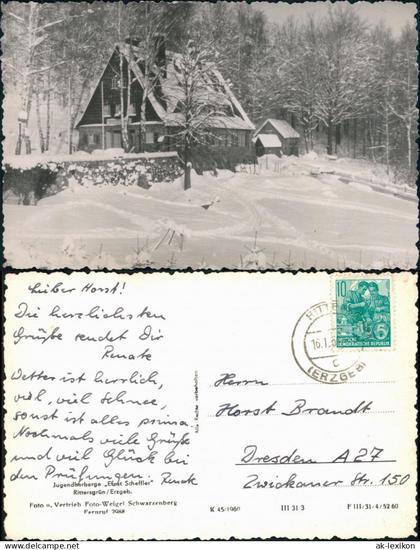 Lieber Horst!
Die herzlichsten
Grüße sendet Dir
Renate
Wetter ist herrlich,
viel, viel Schnee,
sonst ist alles prima.
Nochmals viele Grüße
und viel Glück bei
den Prüfungen. Renate
Jugendherberge „Ernst Scheffler"
Rittersgrün/Erzgeb.
Foto u. Vertrieb Foto-Weigel Schwarzenberg
Fernruf 2088
K 45/1960 III 31 3 F III/31/4/52 60
Alle Rechte vorbehalten
RITTE
16.1.6
c
(ERZGEB)
10
DEUTSCHE
DEMOKRATISCHE REPUBLIK
Herrn
Horst Brandt
Dresden A 27
Zwickauer Str. 150
© ak-lexikon